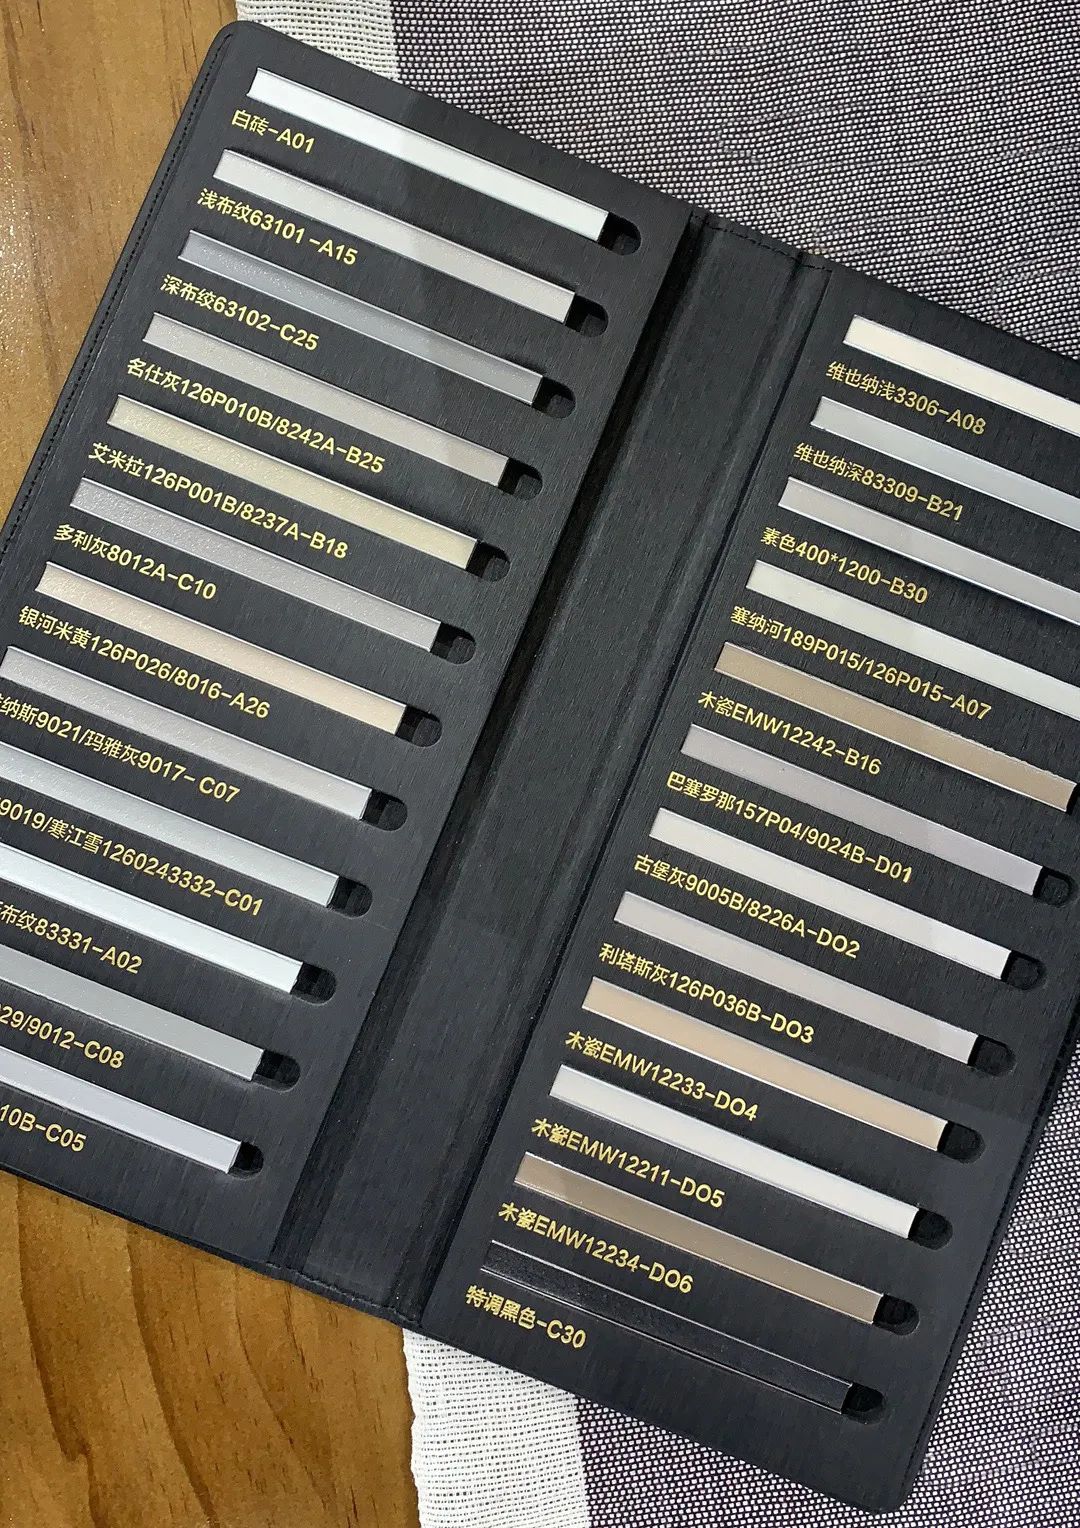 白砖-A01
浅布纹63101-A15
深布纹63102-C25
名仕灰126P010B/8242A-B25
艾米拉126P001B/8237A-B18
多利灰8012A-C10
银河米黄126P026/8016-A26
纳斯9021/玛雅灰9017-C07
9019/寒江雪1260243332-C01
布纹83331-A02
29/9012-C08
10B-C05
维也纳浅3306-A08
维也纳深83309-B21
素色400*1200-B30
塞纳河189P015/126P015-A07
木瓷EMW12242-B16
巴塞罗那157P04/9024B-D01
古堡灰9005B/8226A-DO2
利塔斯灰126P036B-DO3
木瓷EMW12233-DO4
木瓷EMW12211-DO5
木瓷EMW12234-DO6
特调黑色-C30